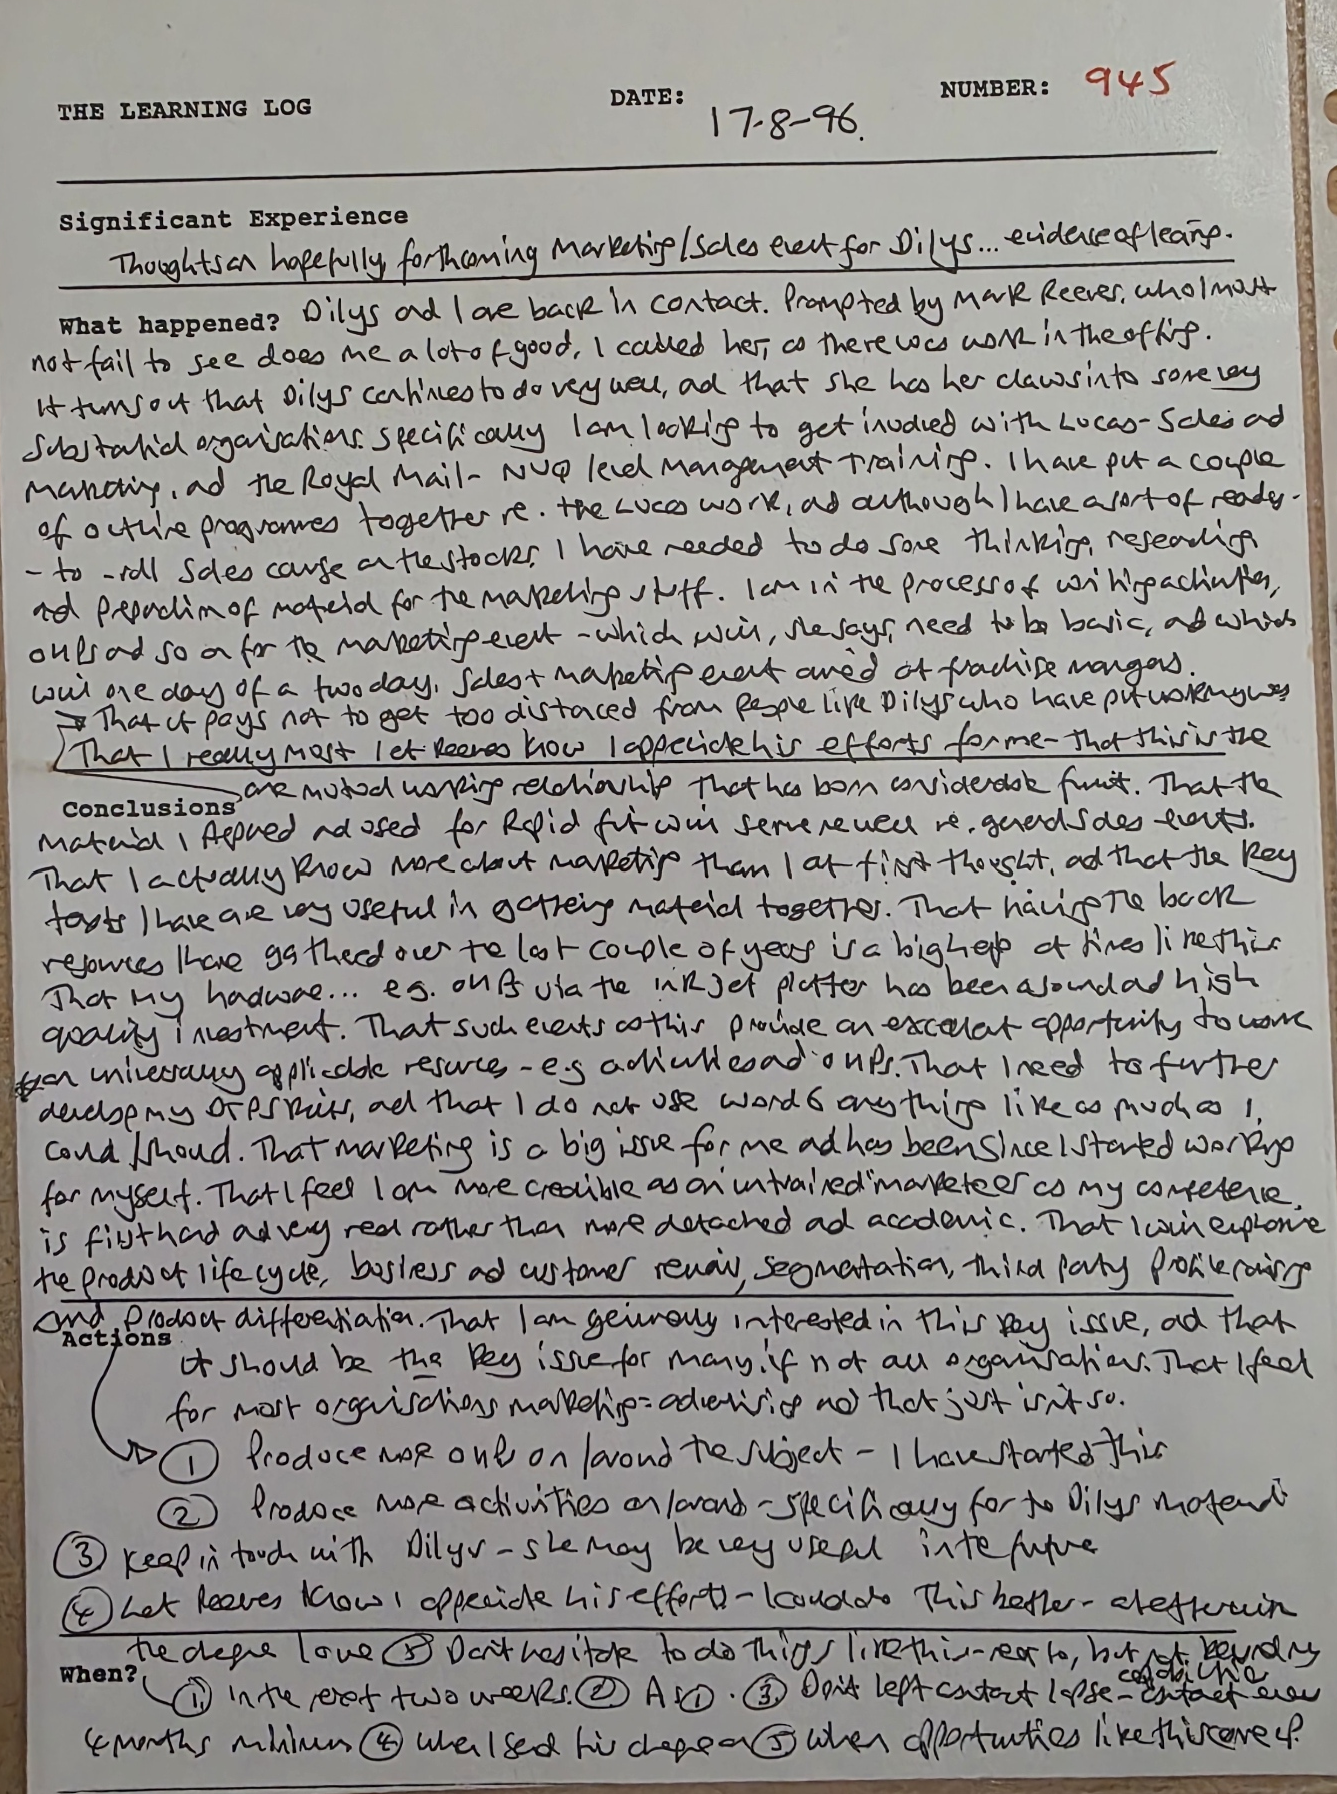 THE LEARNING LOG DATE: 17-8-96. NUMBER: 945
Significant Experience
Thoughts on hopefully forthcoming Marketing/Sales event for Dilys... evidence of learning.
What happened? Dilys and I are back in contact. Prompted by Mark Reeves, who I must
not fail to see does me a lot of good, I called her, as there was work in the offing.
It turns out that Dilys continues to do very well, and that she has her claws into some very
substantial organisations. Specifically I am looking to get involved with Lucas - Sales and
Marketing, and the Royal Mail - NVQ level Management Training. I have put a couple
of outline programmes together re. the Lucas work, and although I have a sort of ready-
- to - roll Sales course on the stocks, I have needed to do some thinking, researching
and preparation of material for the marketing stuff. I am in the process of writing activities,
OHPs and so on for the marketing event - which will, she says, need to be basic, and which
will one day of a two day, Sales + marketing event aimed at franchise managers.
That it pays not to get too distanced from people like Dilys who have put work my way
That I really must let Reeves know I appreciate his efforts for me - that this is the
one mutual working relationship that has born considerable fruit. That the
Conclusions
material I prepared and used for Rapid fit will serve me well re. general sales events.
That I actually know more about marketing than I at first thought, and that the key
texts I have are very useful in gathering material together. That having the back
resources I have gathered over the last couple of years is a big help at times like this
That my hardware... eg. OHPs via the inkjet plotter has been a sound and high
quality investment. That such events as this provide an excellent opportunity to work
on universally applicable resources - e.g activities and OHPs. That I need to further
develop my DTP skills, and that I do not use word 6 anything like as much as I
could/should. That marketing is a big issue for me and has been since I started working
for myself. That I feel I am more credible as an "untrained" marketeer as my competence
is firsthand and very real rather than more detached and academic. That I will explore
the product life cycle, business and customer review, segmentation, third party profile raising
and product differentiation. That I am genuinely interested in this key issue, and that
Actions
it should be the key issue for many, if not all organisations. That I feel
for most organisations marketing = advertising and that just isn't so.
① Produce more OHPs on/around the subject - I have started this
② Produce more activities on/around - specifically for the Dilys material
③ Keep in touch with Dilys - she may be very useful in the future
④ Let Reeves know I appreciate his efforts - I could do this better - a letter with
the cheque I owe ⑤ Don't hesitate to do things like this - near to, but not beyond my
capabilities
When? ① In the next two weeks. ② As ①. ③ Don't left contact lapse - contact every
4 months minimum ④ When I send his cheque on ⑤ When opportunities like this come up.